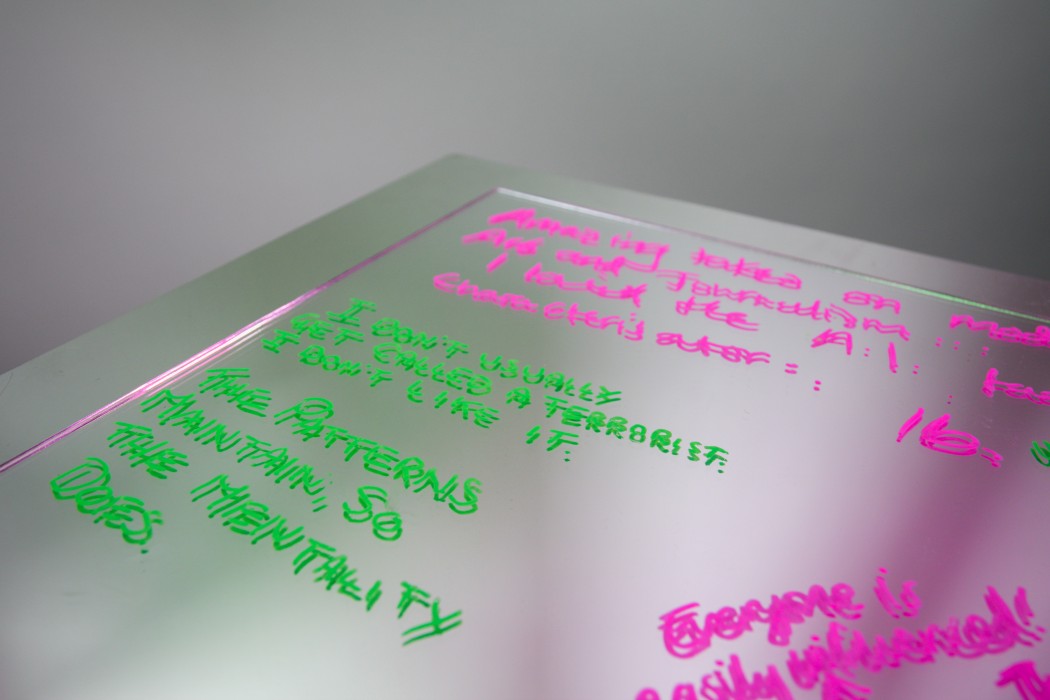 Amazing takes on
Art and Journalism
I loved the A.I.
Characterisator
16
I DON'T USUALLY
GET CALLED A TERRORIST.
I DON'T LIKE IT.
THE PATTERNS
MAINTAIN, SO
THE MENTALITY
DOES.
Everyone is
easily influenced!